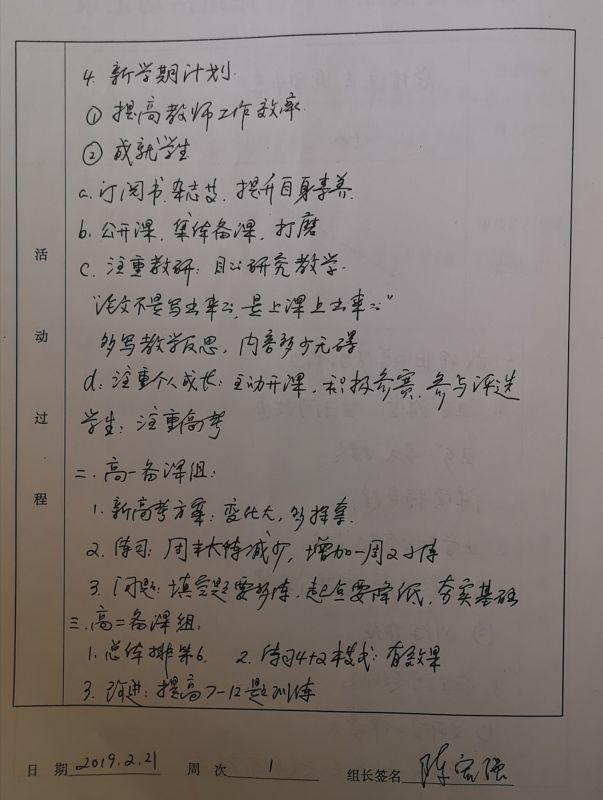 4. 新学期计划.
① 提高教师工作效率.
② 成就学生
a. 订阅书.杂志艾. 提升自身素养.
b. 公开课. 集体备课. 打磨
c. 注重教研: 自公研究教学.
"论文不是写出来的, 是上课上出来的"
多写教学反思, 内容多少无碍
d: 注重个人成长: 主动开课. 积极参赛. 参与评选
学生: 注重高考
二. 高一备课组:
1. 新高考方案: 变化大, 多探索.
2. 练习: 周末大练减少, 增加一周2小练
3. 问题: 填空题要多练, 起点要降低, 夯实基础
三. 高二备课组:
1. 总体排第6. 2. 练习4+2模式: 有效果
3. 改进: 提高7-12题训练
活动过程
日 期 2019.2.21 周 次 1 组长签名 陈宏强